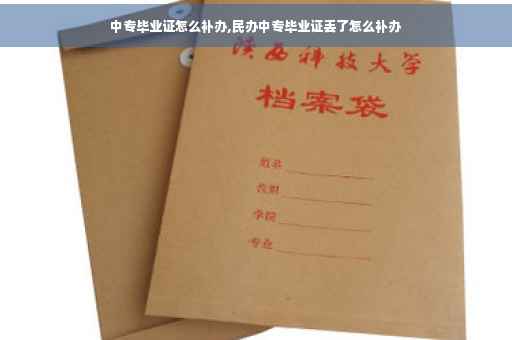 中专毕业证怎么补办,民办中专毕业证丢了怎么补办
陕西科技大学
档案袋
姓名
学院
专业